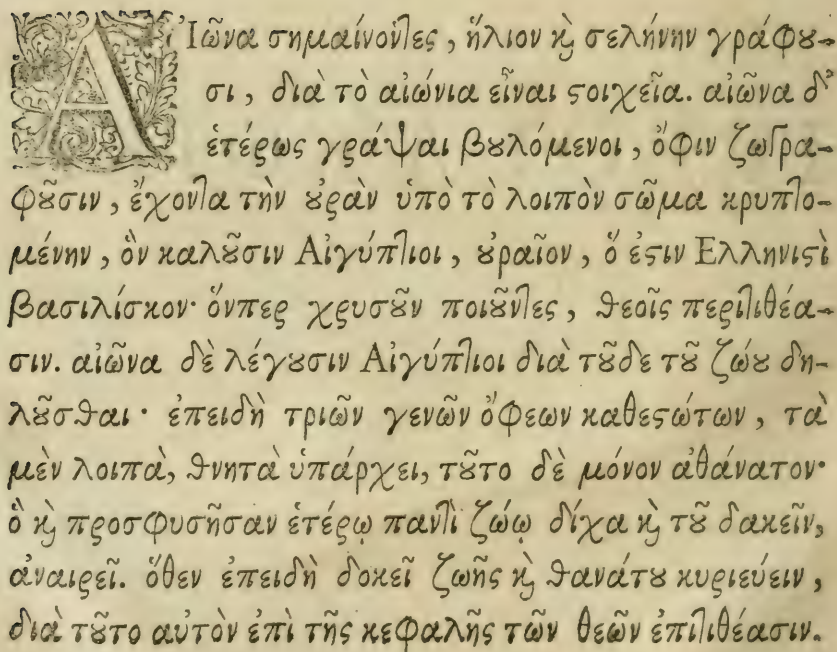 Αἰῶνα σημαίνοντες, ἥλιον καὶ σελήνην γράφου-
σι, διὰ τὸ αἰώνια εἶναι στοιχεῖα. αἰῶνα δ'
ἑτέρως γράψαι βουλόμενοι, ὄφιν ζωγρα-
φοῦσιν, ἔχοντα τὴν οὐρὰν ὑπὸ τὸ λοιπὸν σῶμα κρυπτο-
μένην, ὃν καλοῦσιν Αἰγύπτιοι, οὐραῖον, ὅ ἐστιν Ελληνιστὶ
βασιλίσκον· ὅνπερ χρυσοῦν ποιοῦντες, θεοῖς περιτιθέα-
σιν. αἰῶνα δὲ λέγουσιν Αἰγύπτιοι διὰ τοῦδε τοῦ ζώου δη-
λοῦσθαι· ἐπειδὴ τριῶν γενῶν ὄφεων καθεστώτων, τὰ
μὲν λοιπὰ, θνητὰ ὑπάρχει, τοῦτο δὲ μόνον ἀθάνατον·
ὃ καὶ προσφυσῆσαν ἑτέρῳ παντὶ ζώῳ δίχα καὶ τοῦ δακεῖν,
ἀναιρεῖ. ὅθεν ἐπειδὴ δοκεῖ ζωῆς καὶ θανάτου κυριεύειν,
διὰ τοῦτο αὐτὸν ἐπὶ τῆς κεφαλῆς τῶν θεῶν ἐπιτιθέασιν.